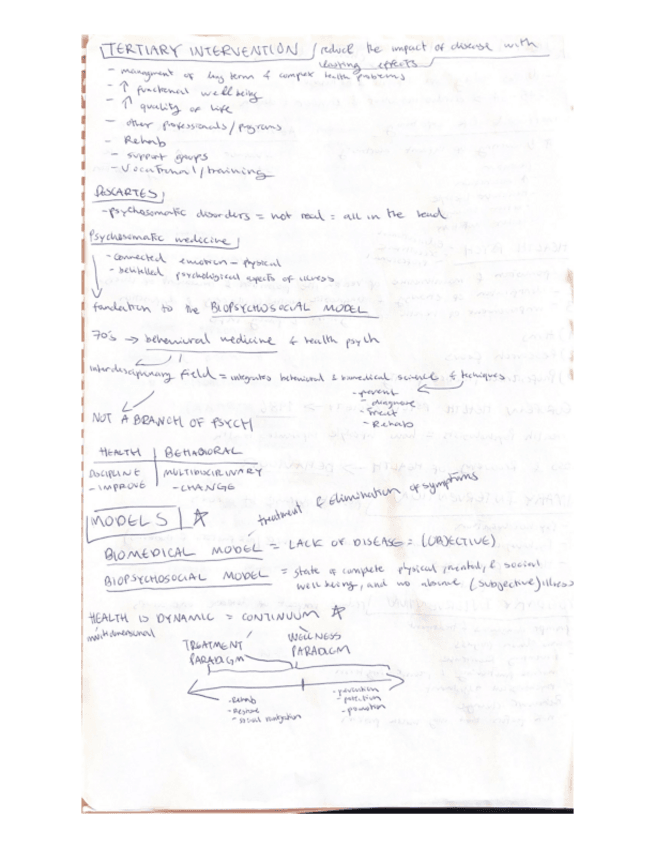 TERTIARY INTERVENTION / reduce the impact of disease with
lasting effects
- managment of long term & complex health problems
- ↑ functional wellbeing
- ↑ quality of life
- other professionals/programs
- Rehab
- support groups
- Vocational/training
DESCARTES;
- psychosomatic disorders = not real = all in the head
Psychosomatic medicine;
- connected emotion - physical
- psychological aspects of illness
fundation to the BIOPSYCHOSOCIAL MODEL
70's → behavioural medicine & health psych
interdisciplinary field = integrates behavioural & biomedical science & techniques
- prevent
- diagnose
- Treat
- Rehab
NOT A BRANCH OF PSYCH
HEALTH | BEHAVIORAL
DISCIPLINE | MULTIDICIRINARY
- IMPROVE - CHANGE
treatment & elimination of symptoms
MODELS ☆
BIOMEDICAL MODEL = LACK OF DISEASE = (OBJECTIVE)
BIOPSYCHOSOCIAL MODEL = state of complete physical, mental, & social
wellbeing, and no absence (subjective) illness
HEALTH IS DYNAMIC = CONTINUUM ☆
multidimensional
TREATMENT PARADIGM
WELLNESS PARADIGM
- Rehab
- Restore
- social
- protection
- promotion